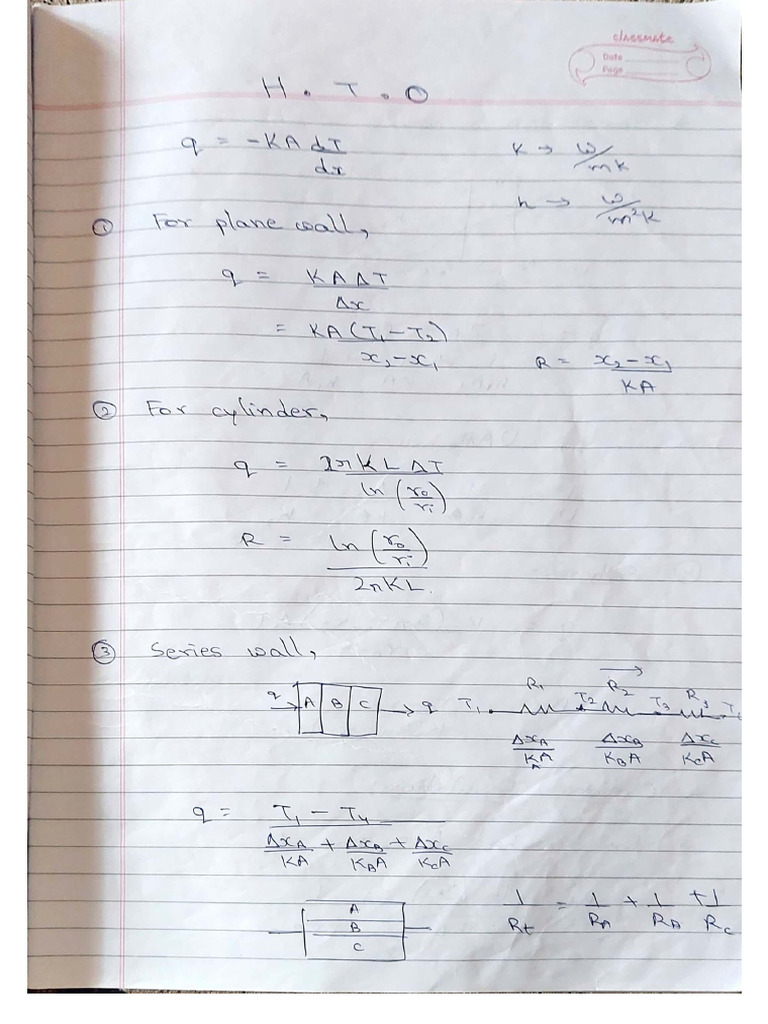 classmate
Date
Page
H.T.O
q = -KA dT/dx
K → W/mK
h → W/m²K
① For plane wall,
q = KAΔT/Δx
= KA(T₁-T₂)/x₂-x₁
R = x₂-x₁/KA
② For cylinder,
q = 2πKLΔT/ln(r₀/rᵢ)
R = ln(r₀/rᵢ)/2πKL
③ Series wall,
q A B C q T₁ R₁ T₂ R₂ T₃ R₃
Δx_A/K_A A Δx_B/K_B A Δx_C/K_C A
q = T₁ - T₄/Δx_A/KA + Δx_B/K_B A + Δx_C/K_C A
A
B
C
1/Rt = 1/R_A + 1/R_B + 1/R_C